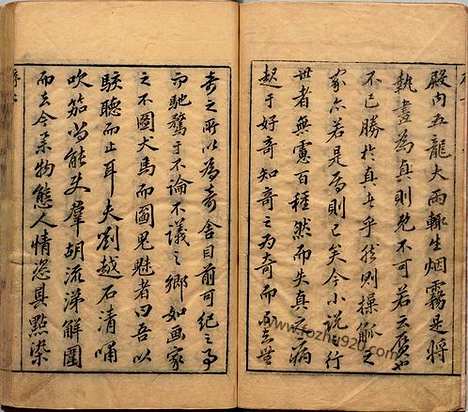 殿內五龍大雨輒生烟霧是將
執畫為真則既不可若云贗也
不已勝於真者乎然則操觚之
家亦若是焉則已矣今小說之行
世者無慮百種然而失真之病
起于好奇知奇之為奇而不知無
奇之所以為奇舍目前可紀之事
而馳騖于不論不議之鄉如畫家
之不圖犬馬而圖鬼魅者曰吾以
駭聽而止耳夫劉越石清嘯
吹笳尚能使羣胡流涕解圍
而去今舉物態人情恣其點染
www.fozhu920.com